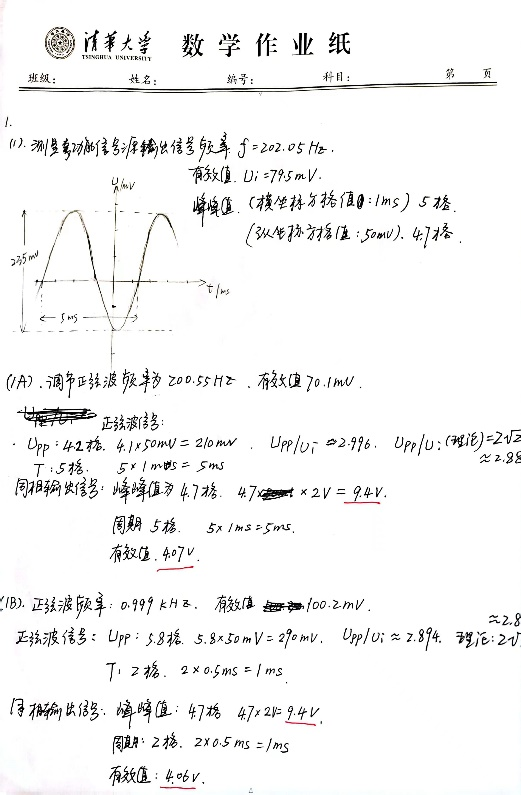 清华大学 数学作业纸
TSINGHUA UNIVERSITY
班级: 姓名: 编号: 科目: 第 页
1.
(1). 测量多功能信号源输出信号频率 f=202.05Hz.
有效值 Ui=79.5mV.
峰峰值 (横坐标方格值:1ms) 5格.
(纵坐标方格值:50mV). 4.7格.
u/mV
235mV
t/ms
5ms
(1A). 调节正弦波频率为 200.55HZ. 有效值 70.1mV.
正弦波信号:
Upp: 4.2格. 4.1×50mV=210mV. Upp/Ui≈2.996. Upp/Ui(理论)=2√2
≈2.88
T: 5格. 5×1ms=5ms
同相输出信号: 峰峰值为 4.7格. 4.7×2V=9.4V.
周期 5格. 5×1ms=5ms.
有效值. 4.07V.
(1B). 正弦波频率: 0.999 kHz. 有效值 100.2mV.
≈2.8
正弦波信号: Upp: 5.8格. 5.8×50mV=290mV. Upp/Ui≈2.894. 理论:2√
T: 2格. 2×0.5ms=1ms
同相输出信号: 峰峰值: 4.7格 4.7×2V=9.4V.
周期: 2格. 2×0.5ms=1ms
有效值: 4.06V.